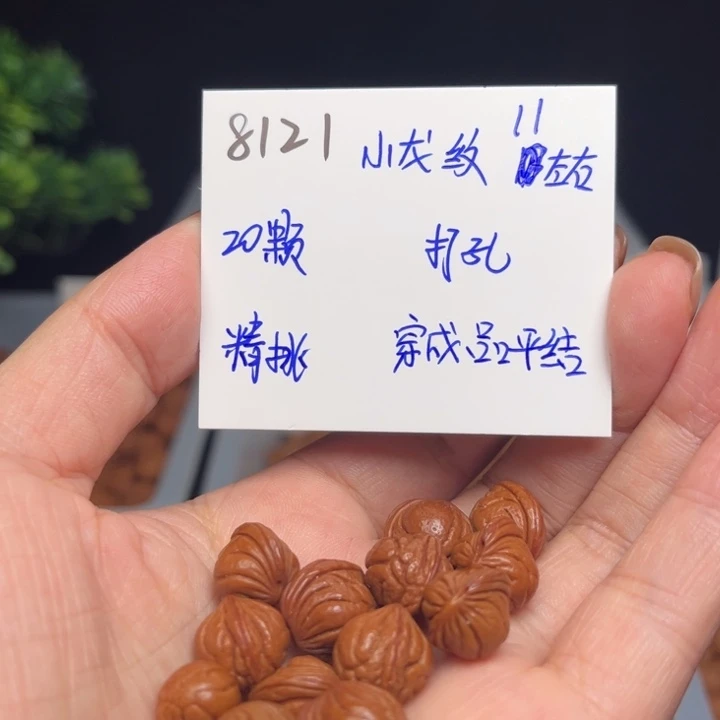 8121 小龙纹 11左右
20颗 打孔
精挑 穿成品平结